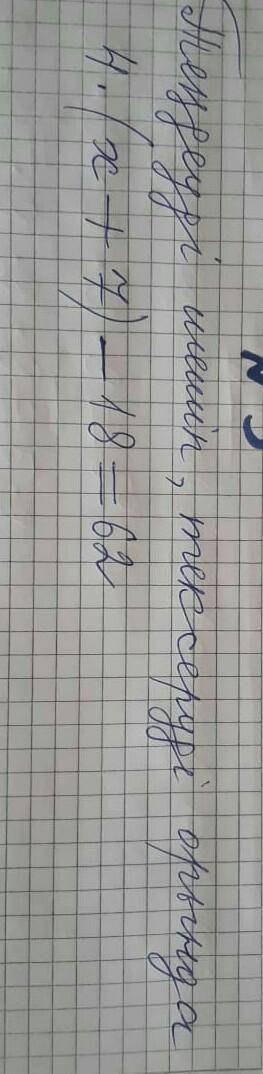 Теңдеуді шешіп, тексеруді орында
4·(x+7)-18=62